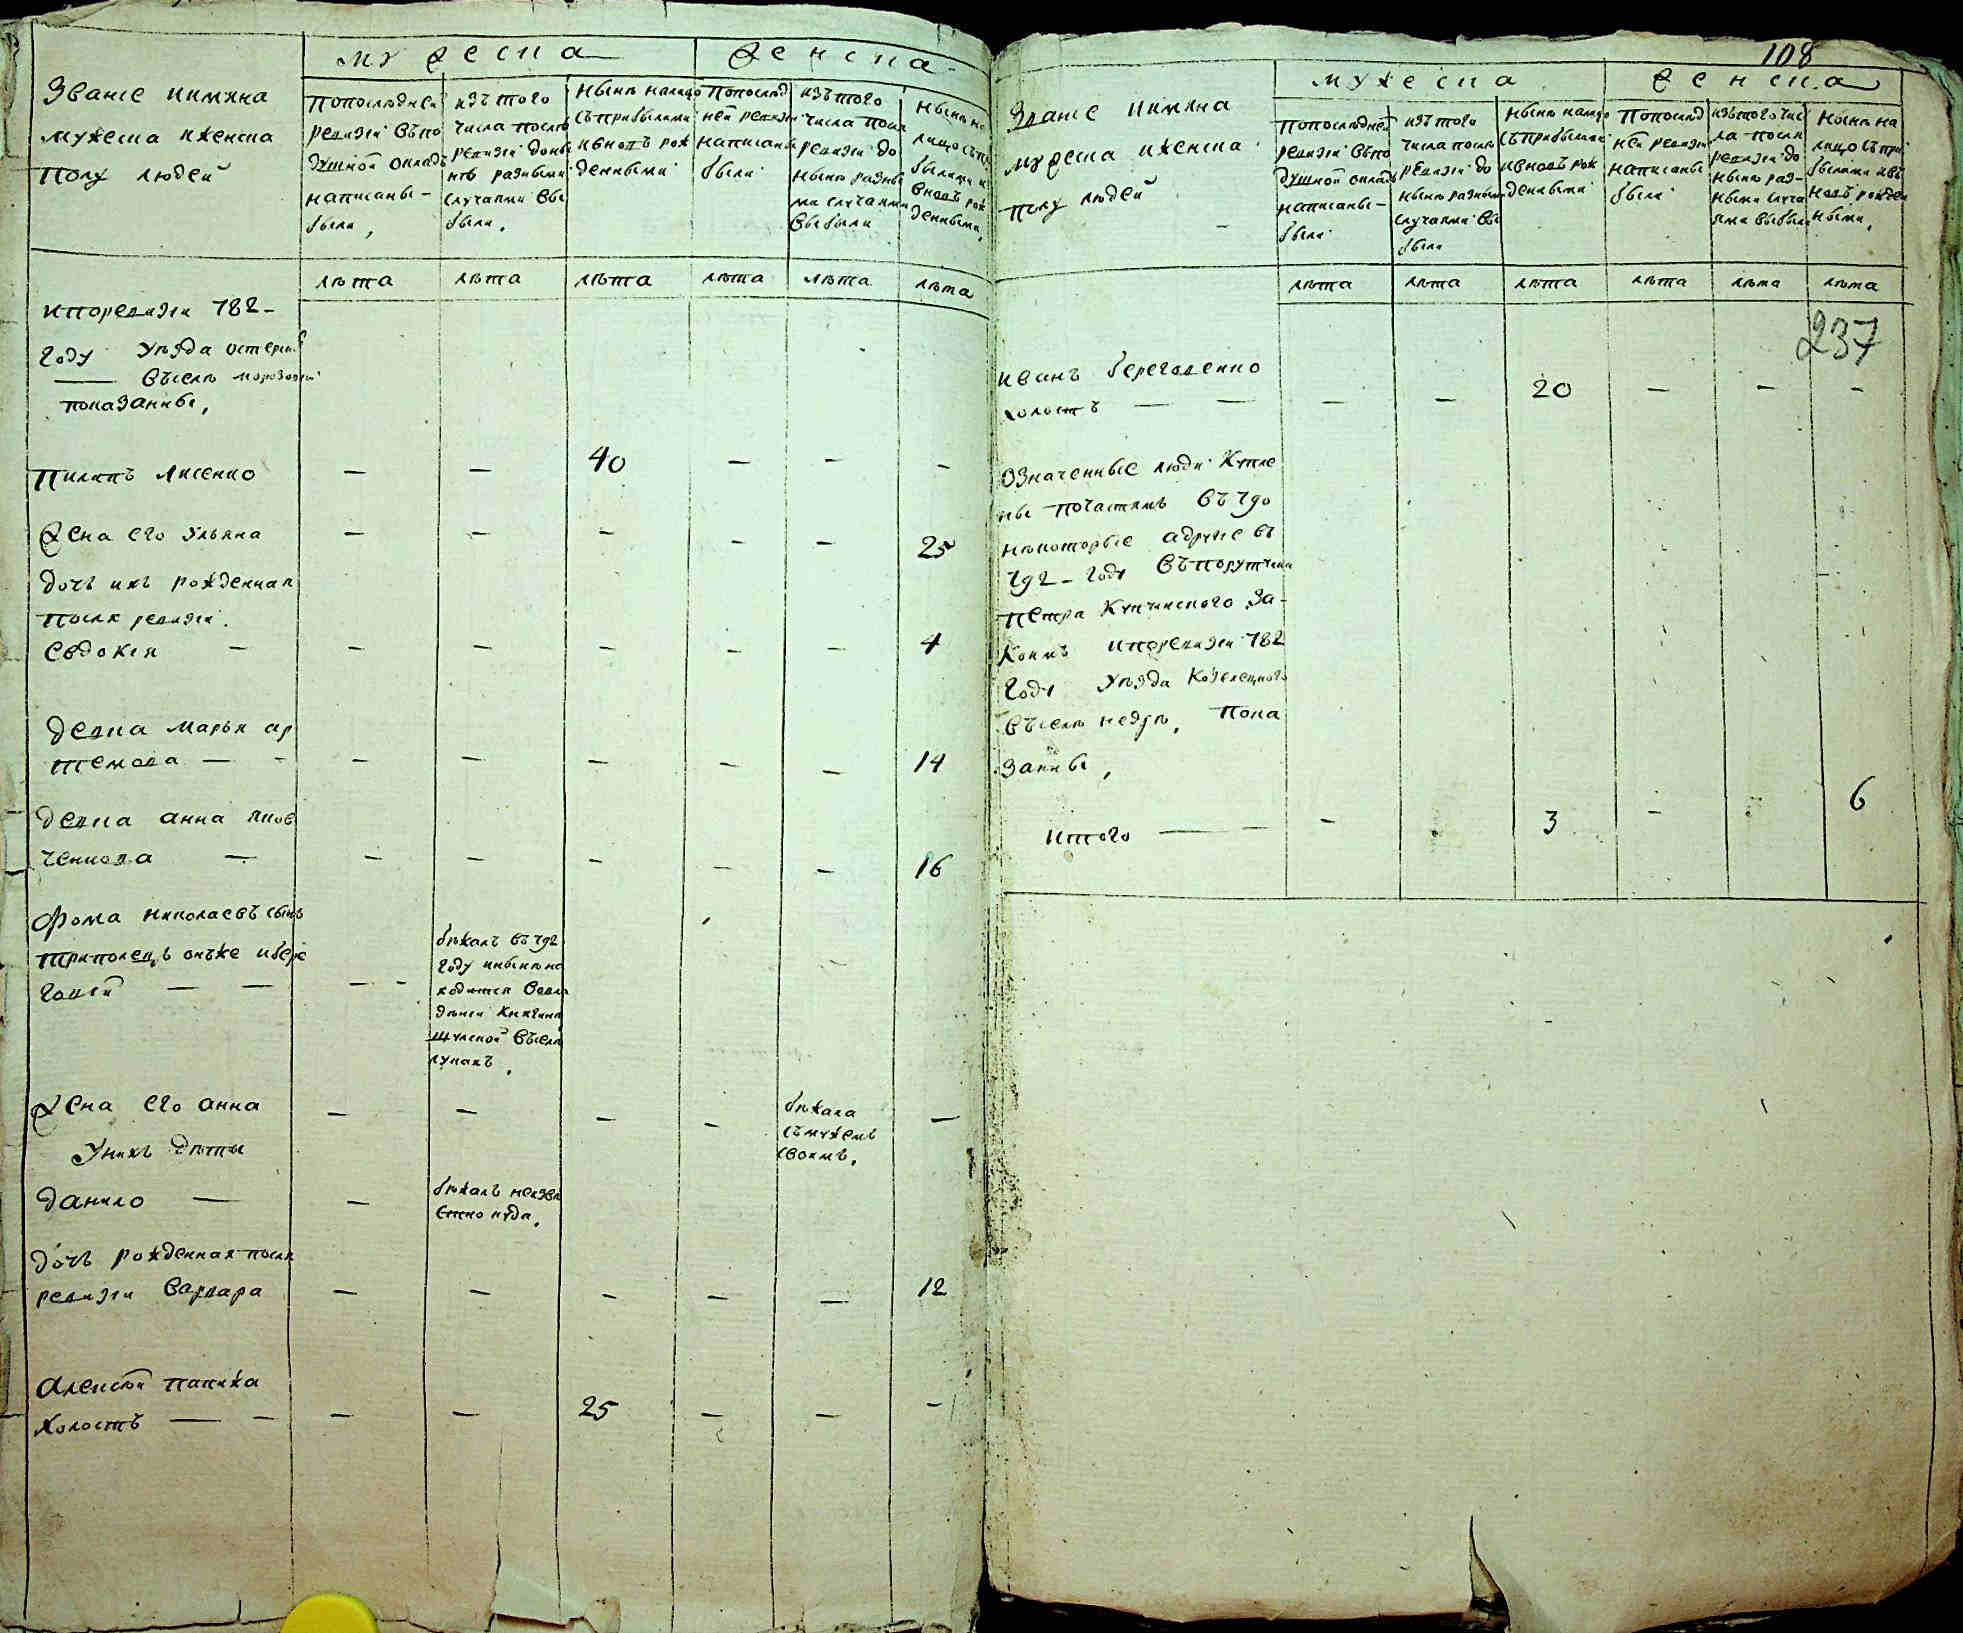 мужеска
женска
Званїе иимяна
мужеска иженска
полу людей
попоследней
ревизїи въпо
душной окладъ
написаны-
были,
изъ того
числа после
ревизїи доны
не разными
случаями вы
были.
ныне налицо
съприбылыми
ивновь рож
денными
Попослед
ней ревизїи
написаны
были
изъ того
числа после
ревизїи до
ныне разны
ми случаями
выбыли
ныне на
лицо съпри
былыми и
вновь рож
денными,
лета
лета
лета
лета
лета
лета
ипоревизїи 782-
году уезда остерск
въселе
показанные,
Пилипъ лисенко — — 40 — — -
Жена его ульяна — — — — — 25
дочь ихъ рожденная
после ревизїи.
Евдокия — — — — — — 4
девка марья ар
темова — - — — — — — 14
девка анна яков
ченкова — — — — — — 16
Фома николаевъ сынъ
триполецъ онъже ибере
говой — — — -
бежалъ въ 792
году иныне на
ходится вовла
денїи княгини
шулской въселе
лукахъ.
Жена его анна — — — — —
бежала
съмужемъ
своимъ.
Унихъ дети
данило — —
бежалъ неизве
стно куда.
дочь рожденная после
ревизїи варвара — — — — — 12
Алексей папижа
холостъ — — — — 25 — — -
108
мужеска
женска
Званїе иимяна
мужеска иженска
полу людей
попоследней
ревизїи въпо
душной окладъ
написаны-
были
изъ того
числа после
ревизїи до
ныне разными
случаями вы
были
ныне налицо
съприбылыми
ивновь рож
денными
Попослед
ней ревизїи
написаны
были
изътого чис
ла после
ревизїи до
ныне раз-
ными случа
ями выбыли
ныне на
лицо съпри
былыми ивъ
новь рожден
ными,
лета
лета
лета
лета
лета
лета
237
иванъ береговенко
холостъ — — — — 20 — — -
Означенные люди купле
ны почастямъ въ 790
некоторые адругие въ
792- году въпорутчика
петра Купчинского За-
коимъ ипоревизїи 782
году уезда Козелецкого
въселе недре, пока
занны,
итого — — - 3 — 6